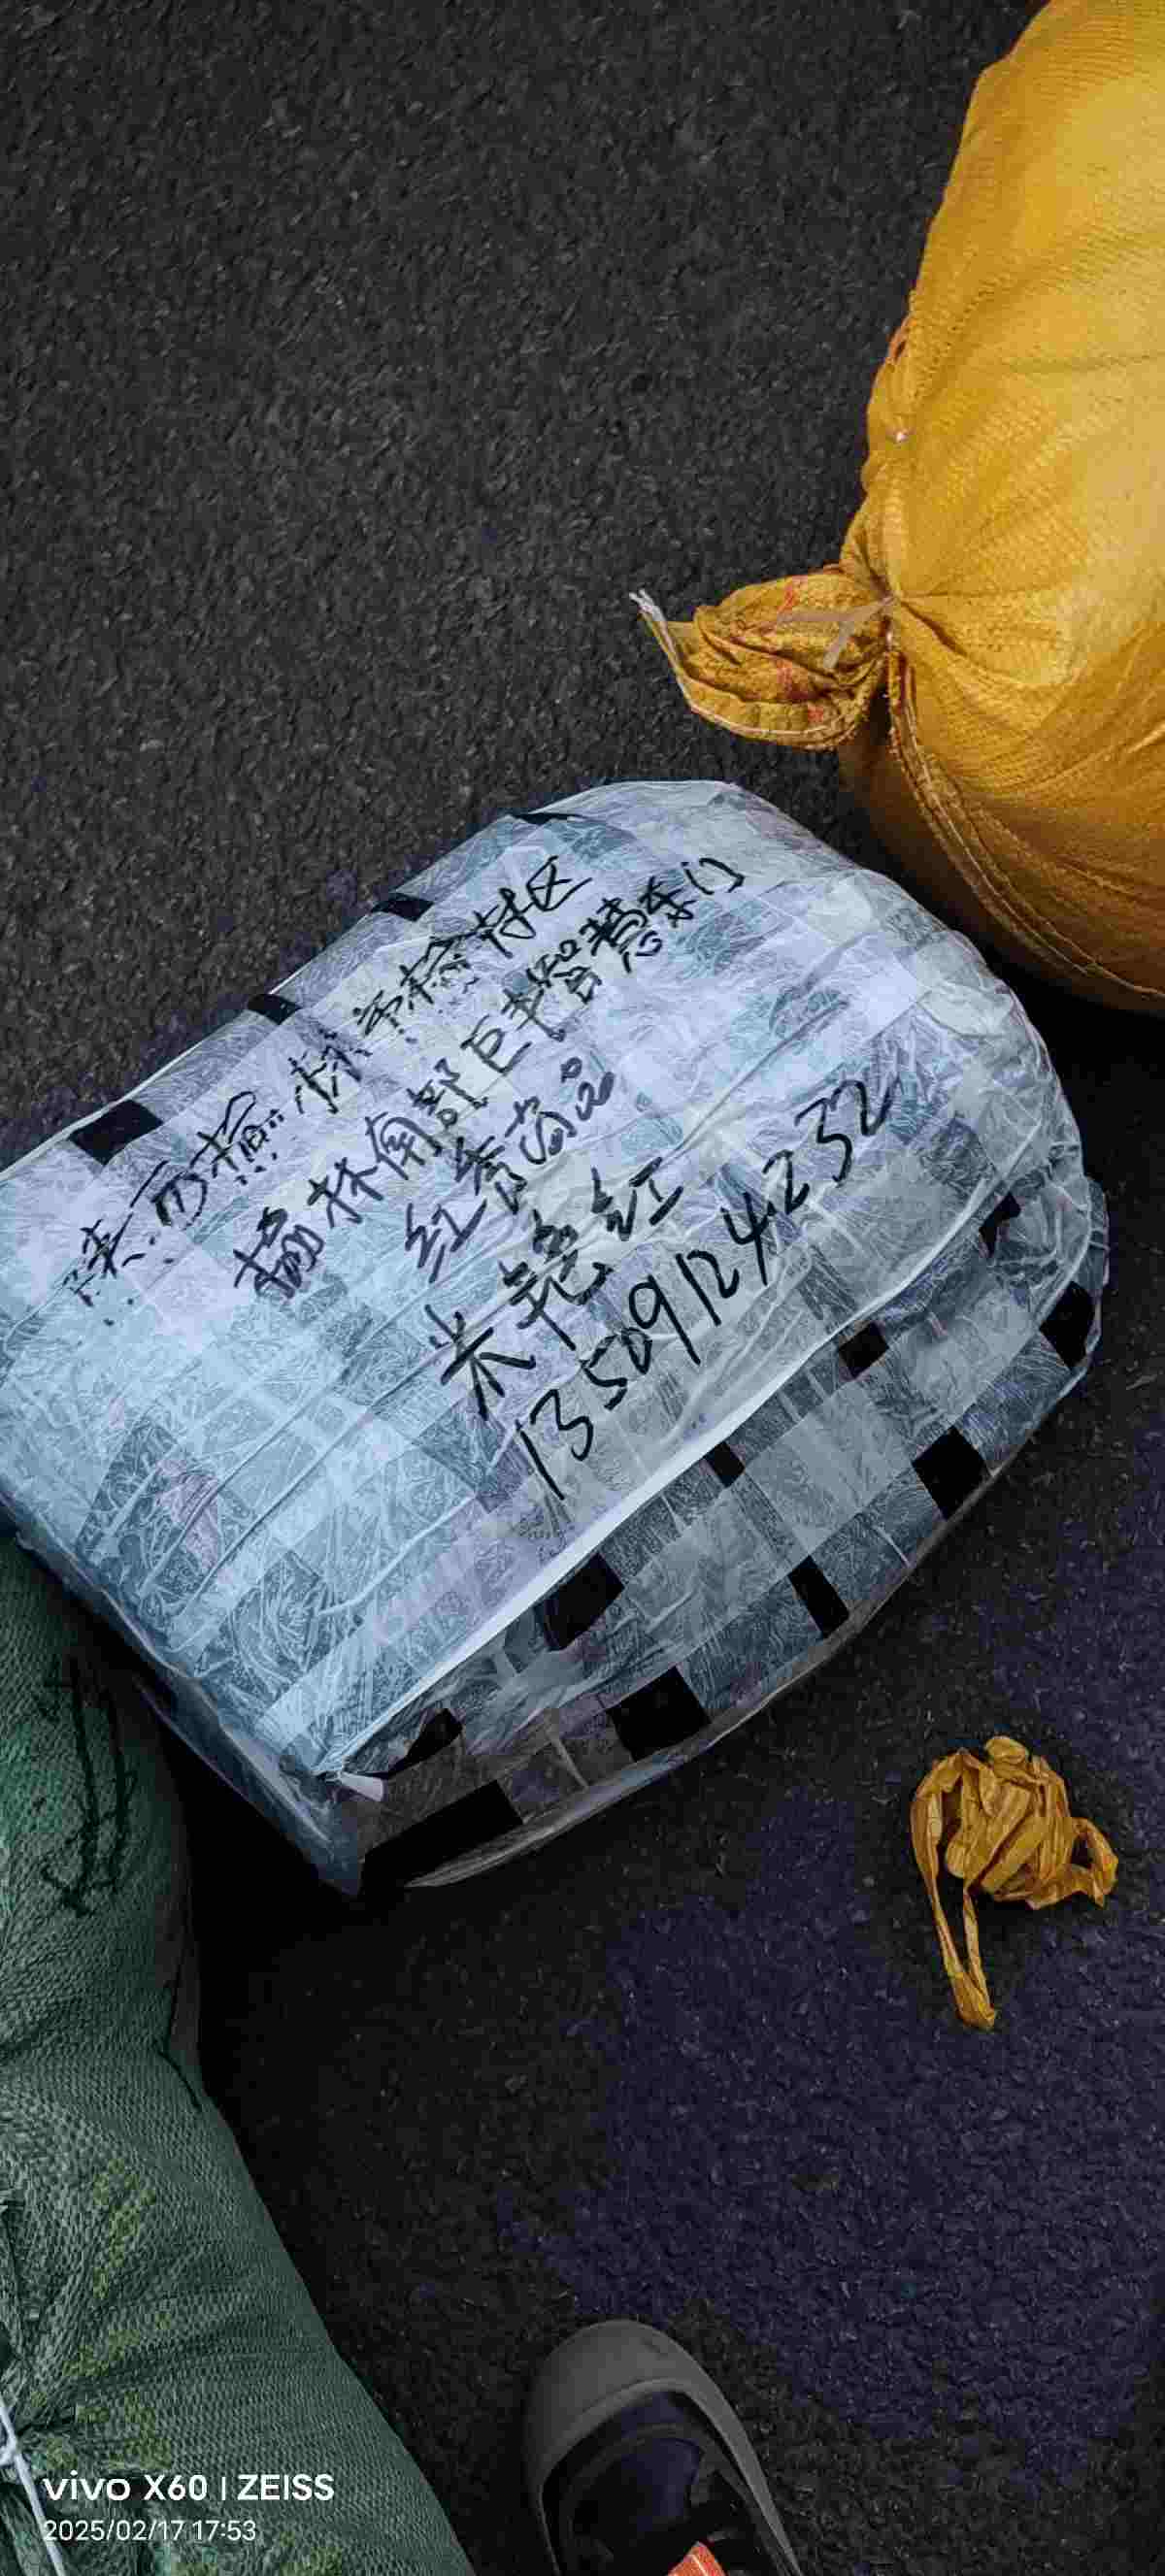 陕西榆林市榆林区
榆林南郡巨丰智慧东门
红意商混
米艳红
13509124232
vivo X60 | ZEISS
2025/02/17 17:53